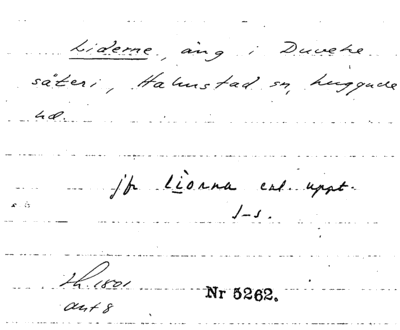 Liderne, äng i Duveke
säteri, Halmstad sn, Luggude
hd.
jfr Liorna enl. uppt.
J-s.
Lh 1801
akt 8
Nr 5262.